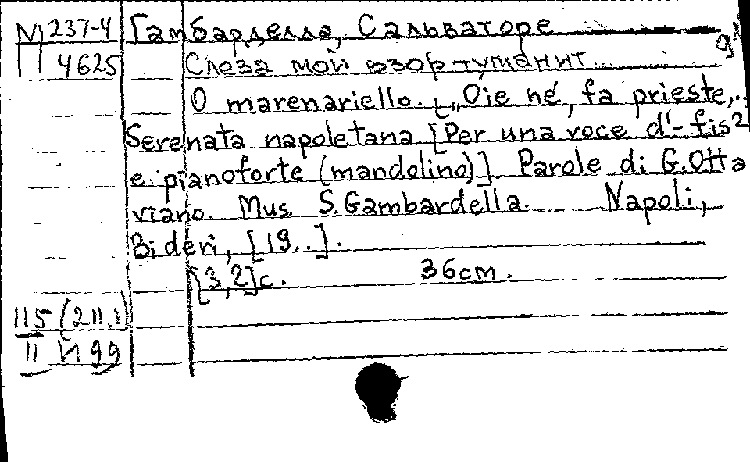 М 237-4 Гамбарделла, Сальваторе
4625 Слеза мой взор туманит
O marenariello. „Oie né, fa prieste,..
Serenata napoletana [Per una voce d'-fis²
e pianoforte (mandolino)]. Parole di G.Otta
viano. Mus. S.Gambardella. Napoli,
Bideri, [19..].
[3,2]с. 36см.
115 (211.1)
11 И 99